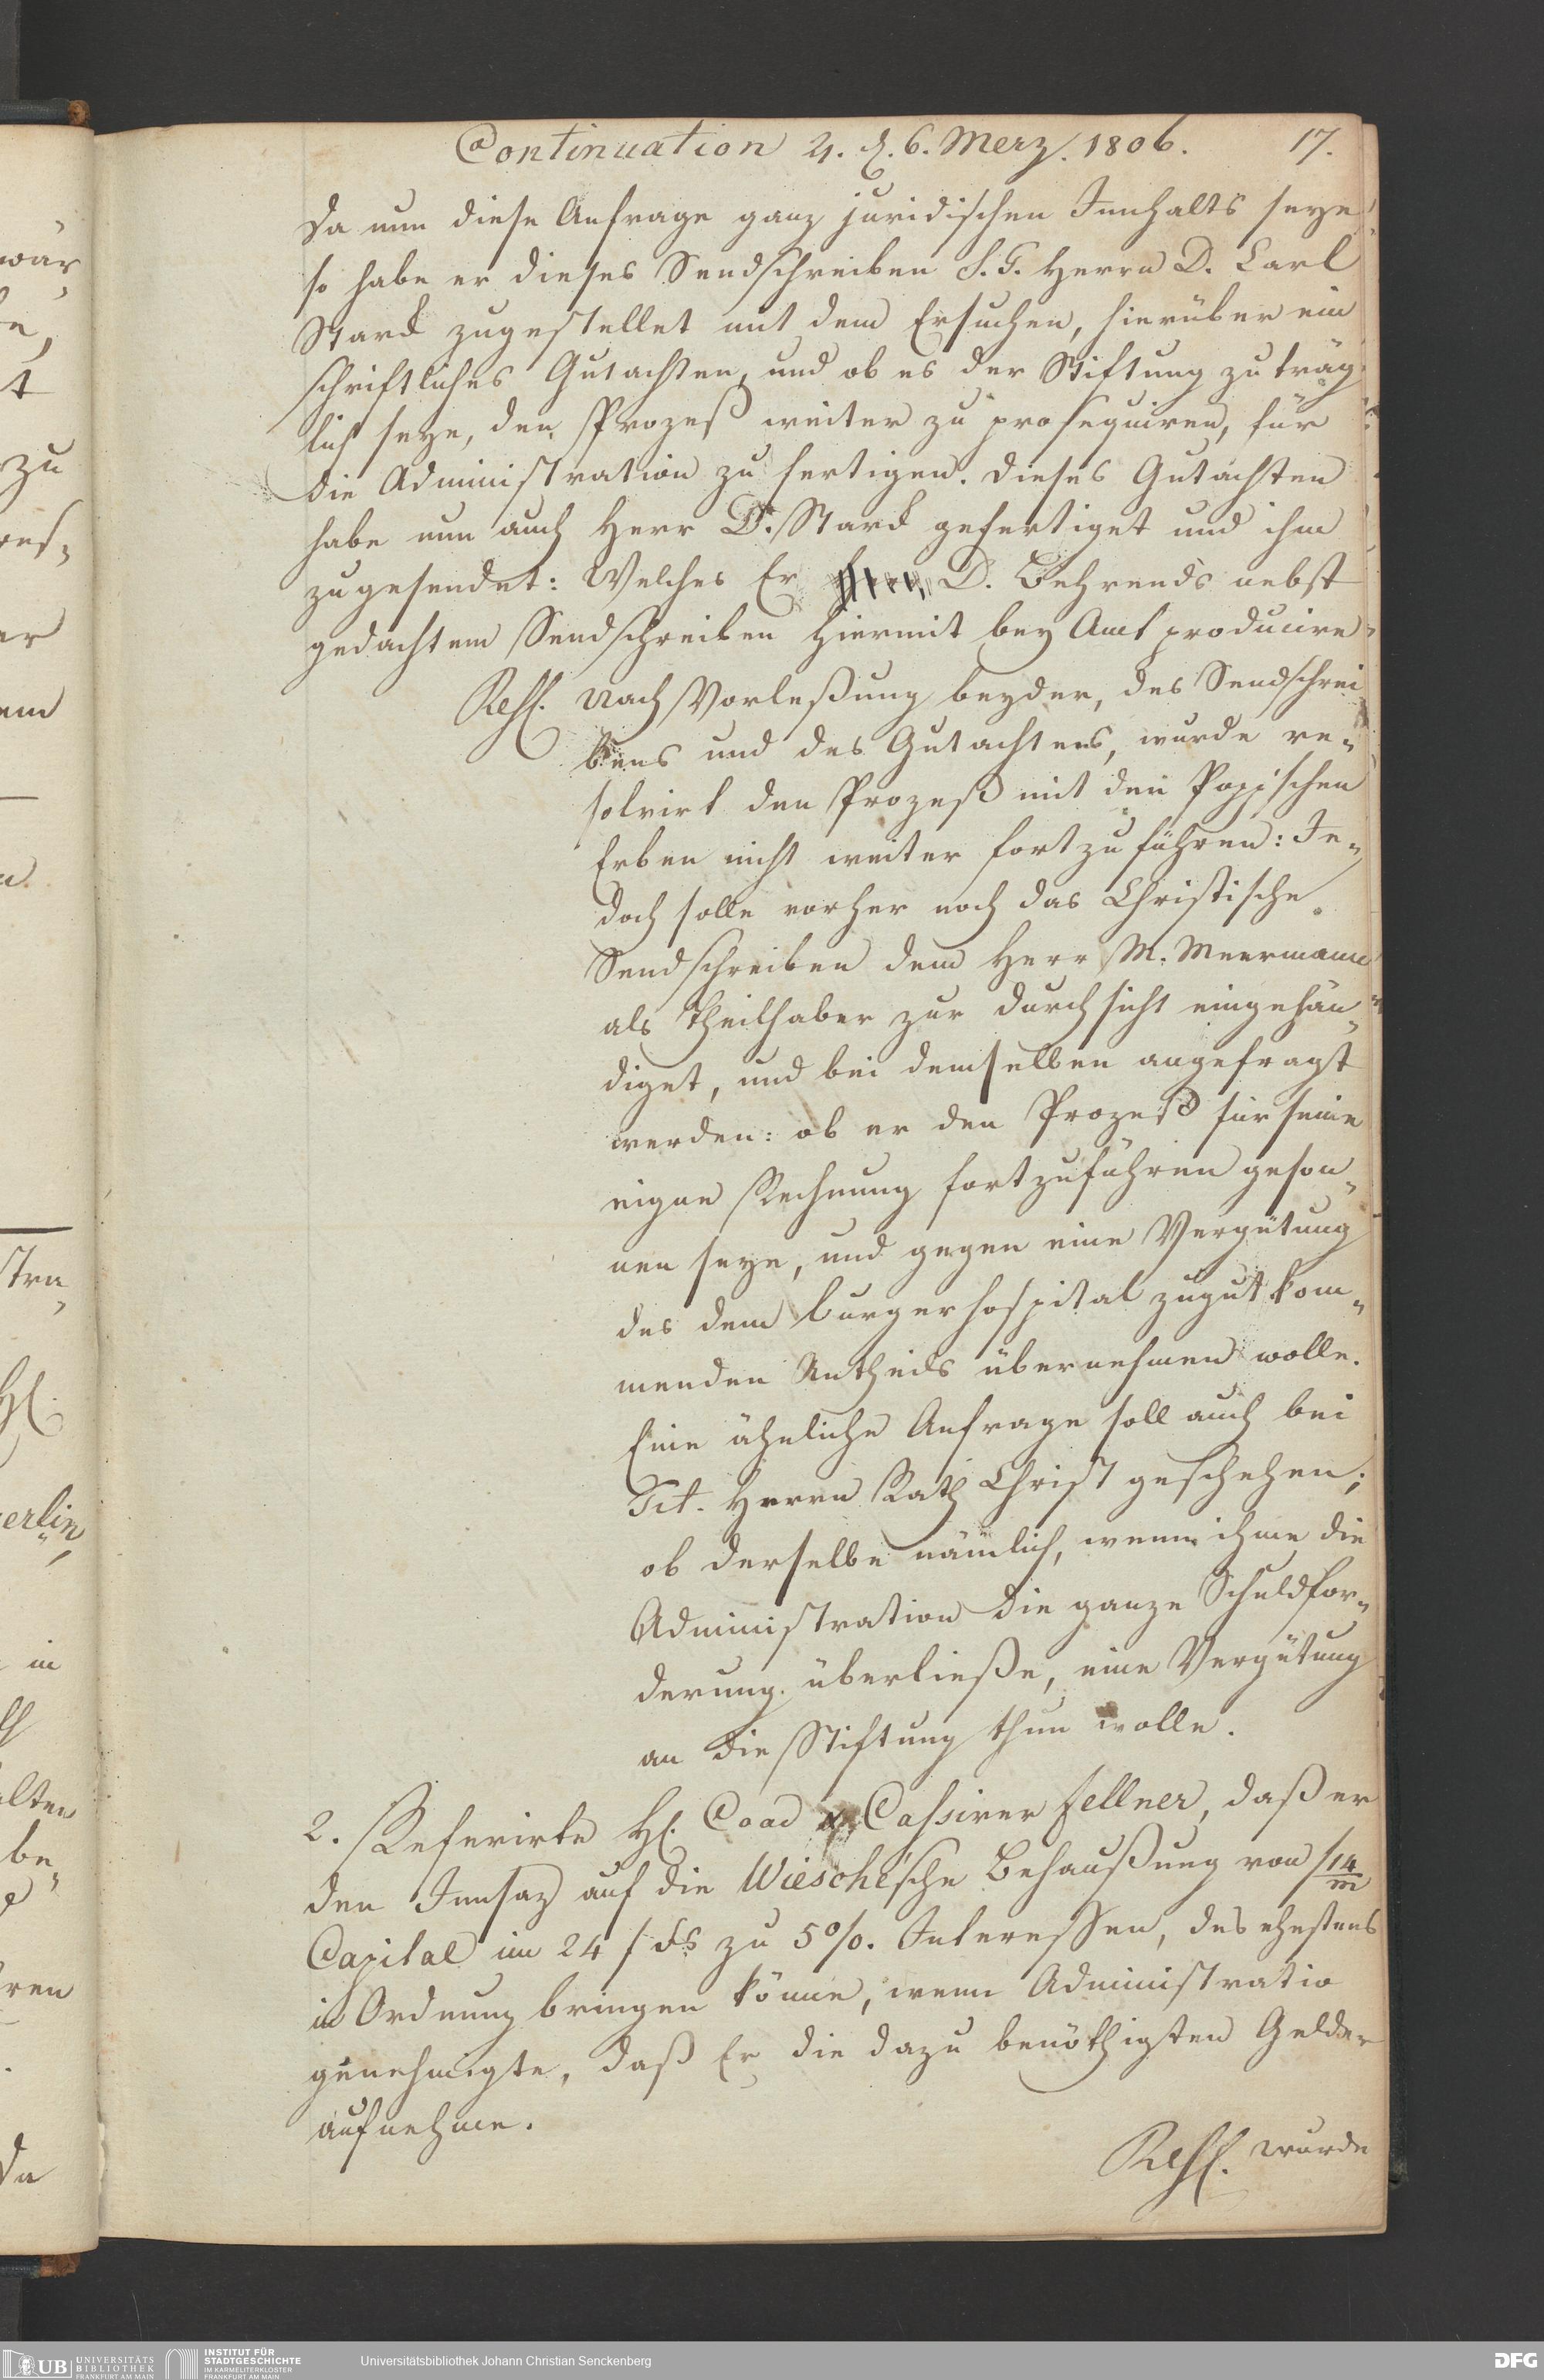 Continuation 4. d. 6. Merz. 1806. 17.
Da nun diese Anfrage ganz juridischen Innhalts seye,
so habe er dieses Sendschreiben S. T. Herrn D. Carl
Starck zugestellet mit dem Ersuchen, hierüber ein
schriftliches Gutachten, und ob es der Stiftung zuträg„
lich seye, den Prozeß weiter zu prosequiren, für
die Administration zu fertigen. Dieses Gutachten
habe nun auch Herr D. Starck gefertiget und ihm
zugesendet: Welches Er D. Behrends nebst
gedachtem Sendschreiben hiermit bey Amt producire.
Ress. Nach Vorlesung beyder, des Sendschrei„
bens und des Gutachtens, wurde re„
solvirt den Prozeß mit den Poppischen
Erben nicht weiter fortzuführen: Je„
doch solle vorher noch das Christische
Sendschreiben dem Herr M. Meermann
als Theilhaber zur Durchsicht eingehän„
diget, und bei demselben angefragt
werden: ob er den Prozeß für seine
eigne Rechnung fortzuführen geson„
nen seye, und gegen eine Vergütung
des dem Burgerhospital zugut kom„
menden Antheils übernehmen wolle.
Eine ähnliche Anfrage soll auch bei
Tit. Herrn Rath Christ geschehen;
ob derselbe nämlich, wenn ihme die
Administration die ganze Schuldfor„
derung überließe, eine Vergütung
an die Stiftung thun wolle.
2. Referirte H. Coad Cassirer Fellner, daß er
den Innsaz auf die Wiesche'sche Behaußung von f 14/m
Capital im 24 f Fs. zu 5%. Interessen, des ehestens
in Ordnung bringen könne, wenn Administratio
genehmigte, daß Er die dazu benöthigten Gelder
aufnehme.
Ress. wurde
wär„
zu
erlin„
in
alten
be„
da
UB UNIVERSITÄTS BIBLIOTHEK FRANKFURT AM MAIN
INSTITUT FÜR STADTGESCHICHTE IM KARMELITERKLOSTER FRANKFURT AM MAIN
Universitätsbibliothek Johann Christian Senckenberg
DFG